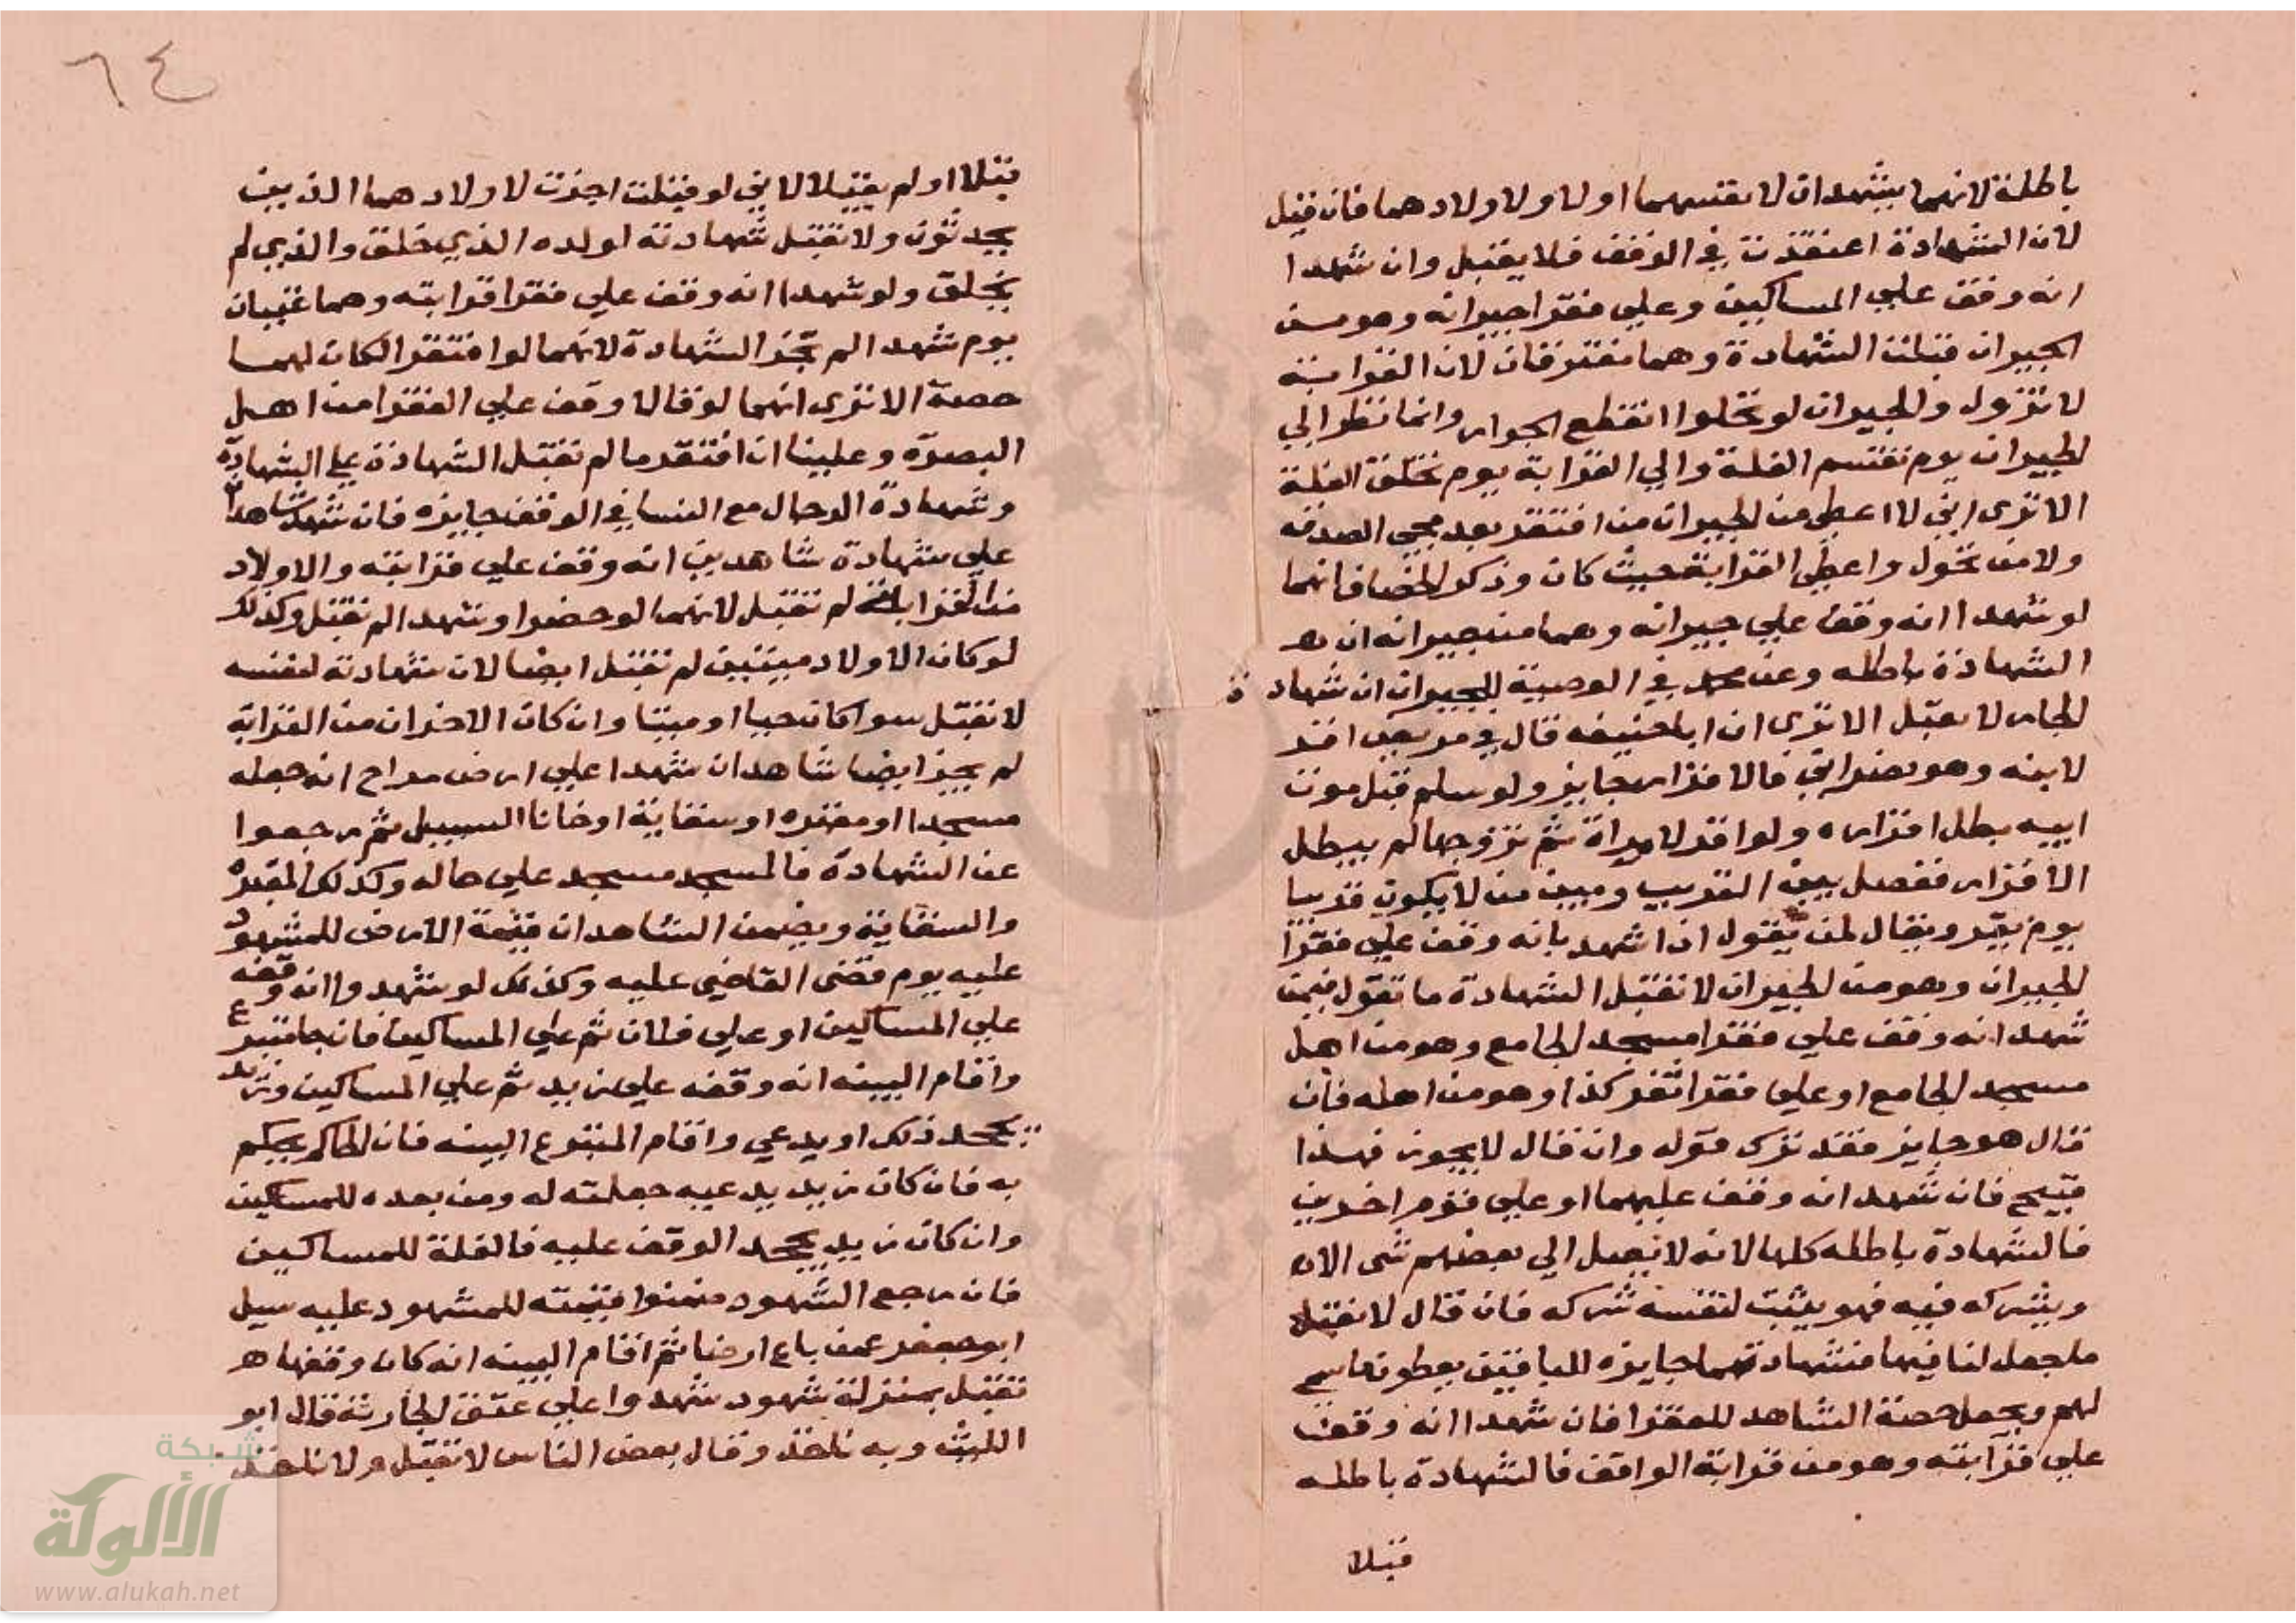 باطلة لانهما يشهدان لانفسهما او لاولادهما فان قيل
لان الشهادة انعقدت في الوقف فلا يقبل وان شهدا
انه وقف علي المساكين وعلي فقرا جيرانه وهو من
الجيران قبلت الشهادة وهما مفترقان لان القرابة
لا تزول والجيران لو تحولوا انقطع الجوار وانما ننظر الي
الجيران يوم تقتسم الغلة والي القرابة يوم تخلق الغلة
الا تري اني لا اعطي من الجيران من افتقر بعد مجي الصدقه
ولا من تحول واعطي القرابة حيث كان وذكر الخصاف انهما
لو شهدا انه وقف علي جيرانه وهما من جيرانه ان هـ
الشهادة باطله وعن محمد في الوصية للجيران ان شهادة
الجار لا تقبل الا تري ان ابا حنيفه قال في مريض اقر
لابنه وهو نصراني قال اقراره جايز ولو اسلم قبل موت
ابيه بطل اقراره ولو اقر لامراة ثم تزوجها لم يبطل
الاقرار ففصل بين القريب وبين من لا يكون قريبا
يوم يقر ويقال لمن يقول ان اشهد بانه وقف علي فقرا
الجيران وهو من الجيران لا تقبل الشهادة ما تقول فيمن
شهد انه وقف علي فقرا مسجد الجامع وهو من اهل
مسجد الجامع او علي فقرا ثغر كذا وهو من اهله فان
قال هو جايز فقد ترك قوله وان قال لا يجوز فهذا
قبيح فان شهد انه وقف عليهما او علي قوم اخرين
فالشهادة باطله كلها لانه لا يصل الي بعضهم شي الا ان
ويشركه فيه فهو يثبت لنفسه شركه فان قال لا نقبل
ما جعل لنا فيها فشهادتهما جايزه للباقين يعطون ما سم
لهم ويجعل حصة الشاهد للفقرا فان شهدا انه وقف
علي قرابته وهو من قرابة الواقف فالشهادة باطله
قبلا
٦٤
قبلا او لم يقبلا لاني لو قبلت اجزت لاولادهما الذين
يحدثون ولا تقبل شهادته لولده الذي خلق والذي لم
يخلق ولو شهدا انه وقف علي فقرا قرابته وهما غنيان
يوم شهدا لم تجز الشهادة لانهما لو افتقرا لكان لهما
حصة الا تري انهما لو قالا وقف علي الفقرا من اهل
البصرة وعلينا ان افتقرنا لم تقبل الشهادة علي الشهادة
وشهادة الرجال مع النسا في الوقف جايزه فان شهد شاهدا
علي شهادة شاهدين انه وقف علي قرابته والاولاد
من القرابة لم تقبل لانهما لو حضرا وشهدا لم تقبل وكذلك
لو كان الاولاد ميتين لم تقبل ايضا لان شهادته لنفسه
لا تقبل سوا كان حيا او ميتا وان كان الاخران من القرابة
لم يجز ايضا شاهدان شهدا علي ارض مراح انه جعله
مسجدا او مقبره او سقاية او خانا السبيل ثم رجعوا
عن الشهادة فالمسجد مسجد علي حاله وكذلك المقبرة
والسقاية ويضمن الشاهدان قيمة الارض للمشهود
عليه يوم قضي القاضي عليه وكذلك لو شهدوا انه وقفه
علي المساكين او علي فلان ثم علي المساكين فان جا متبرع
واقام البينه انه وقفه علي زيد ثم علي المساكين وزيد
يجحد ذلك او يدعي واقام المتبرع البينه فان الحاكم يحكم
به فان كان زيد يدعيه جعلته له ومن بعده للمساكين
وان كان زيد يجحد الوقف عليه فالغلة للمساكين
فان رجع الشهود ضمنوا قيمته للمشهود عليه سيل
ابو جعفر عمن باع ارضا ثم اقام البينه انه كان وقفها هـ
تقبل بمنزلة شهود شهدوا علي عتق الجارية قال ابو
الليث وبه ناخذ وقال بعض الناس لا تقبل ولا ناخذ
شبكة
الألوكة
www.alukah.net